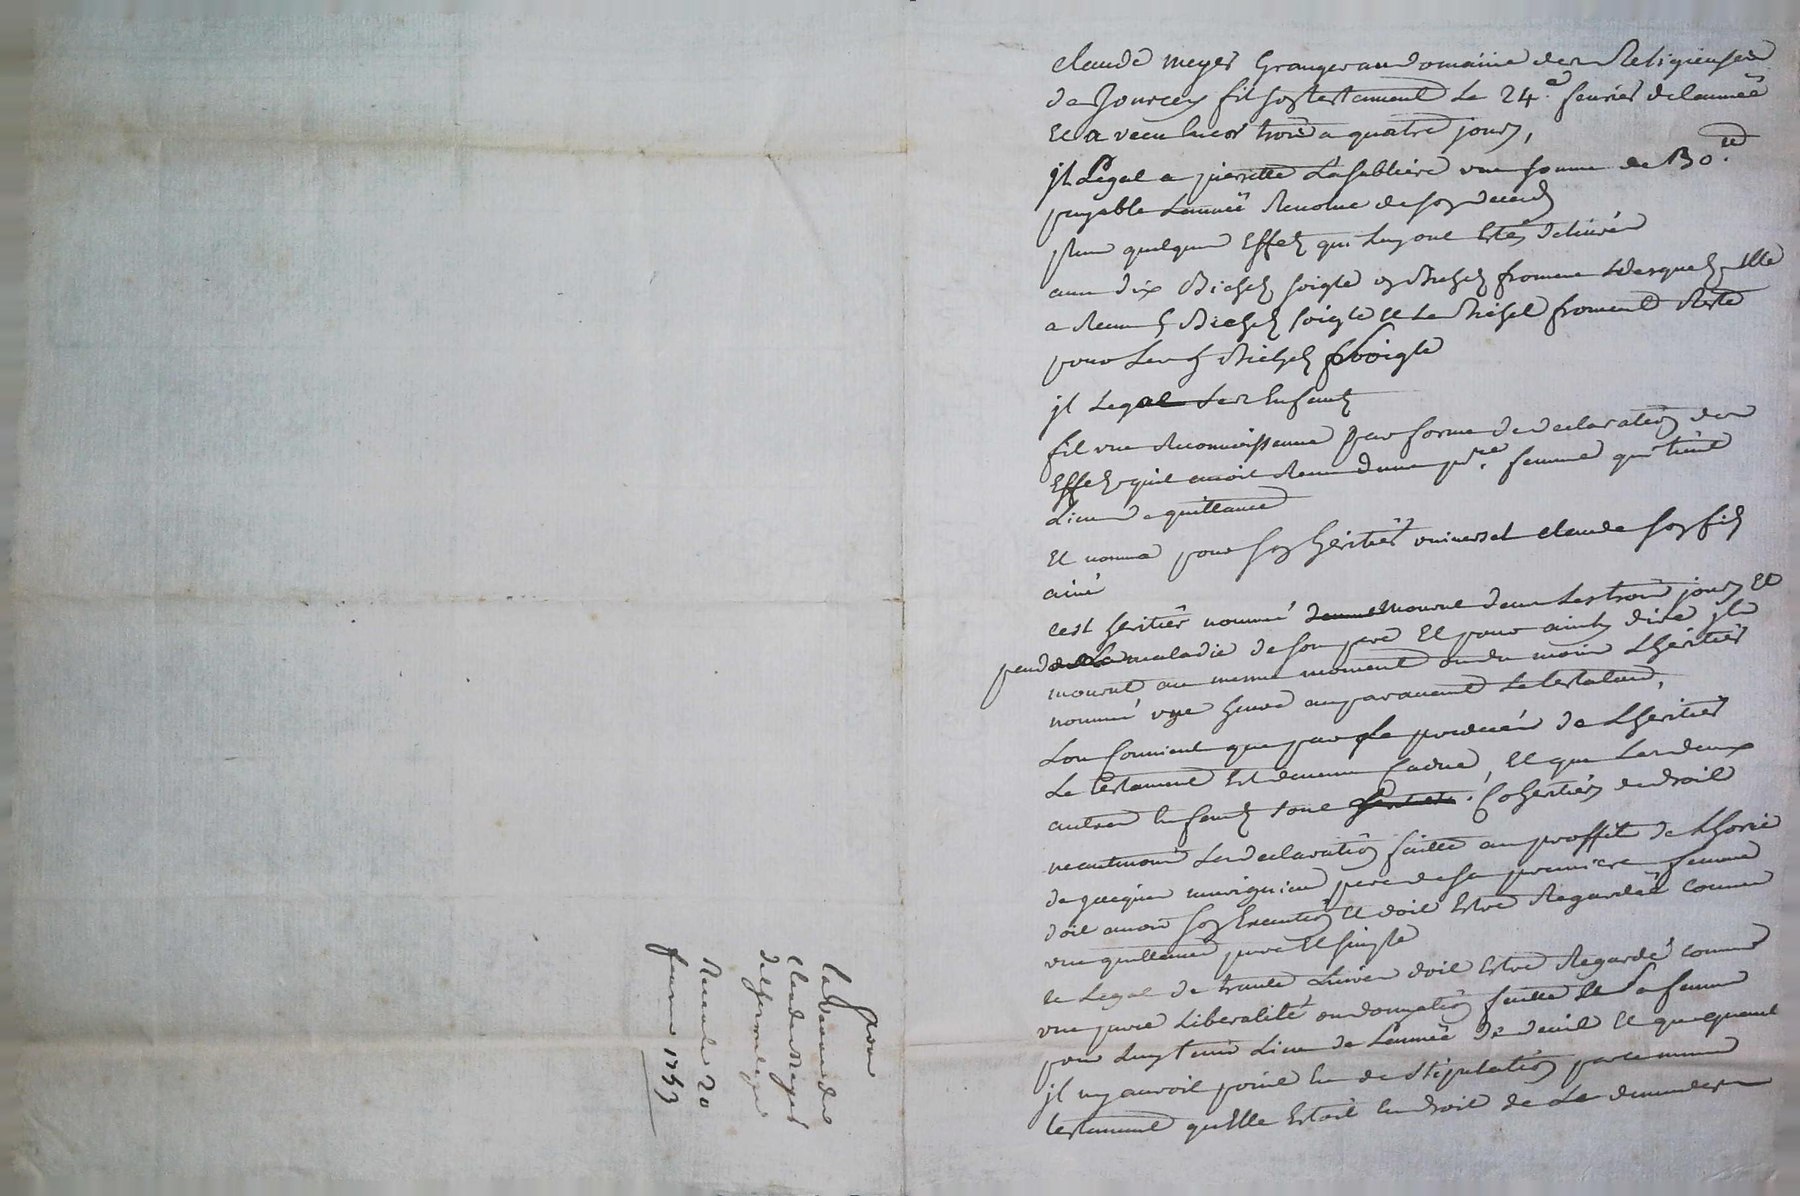 claude meyer Granger au domaine des Religieuses
de Jourcey fit son testament le 24.e feurier de lannee
Et a vecu encor trois a quatre jours,
jl Legat a pierrette Lasabliere une somme de 30.lt
payable Lannee Revolue de son deced
plus quelques Effets qui Luy ont Estes delivrés
aux dix Bichets soigle Bichets froment Lesquels Elle
a Receu 5 Bichets soigle et Le Bichet froment Reste
pour Les 5 Bichets soigle
jl Legat Ses Enfants
fit une Reconnoissance par forme de declaration des
Effets quil auoit Receu dune pre. femme qui tient
Lieu de quittance
Et nomma pour son heritier universel claude son fils
ainé
cest heritier nommé mourut dans Les trois jours Et
pend La maladie de son pere Et pour ainsy dire jls
mourut au meme moment ou du moins Lheritier
nommé une heure auparauant Le testateur,
Lon Conuient que par Le predecés de Lheritier
Le testament Est deuenu Caduc, Et que Les deux
autres Enfants sont Coheritiers de droit
neantmoins La declaration faitte au proffit de
de jacques pere de sa premiere femme
doit auoir son Execution Et doit Estre Regardée comme
une quittance pure Et simple
le Legat de trente Liures doit Estre Regardé comme
une pure Liberalité ou donnation faitte a Sa femme
pour Luy tenir Lieu de Lannée de deuil Et que quand
jl ny auroit point Eu de Stipulation par le meme
testament quElle Estoit En droit de La demander
pour
La veuue de
claude meyer

Receu le 20
feurier 1753